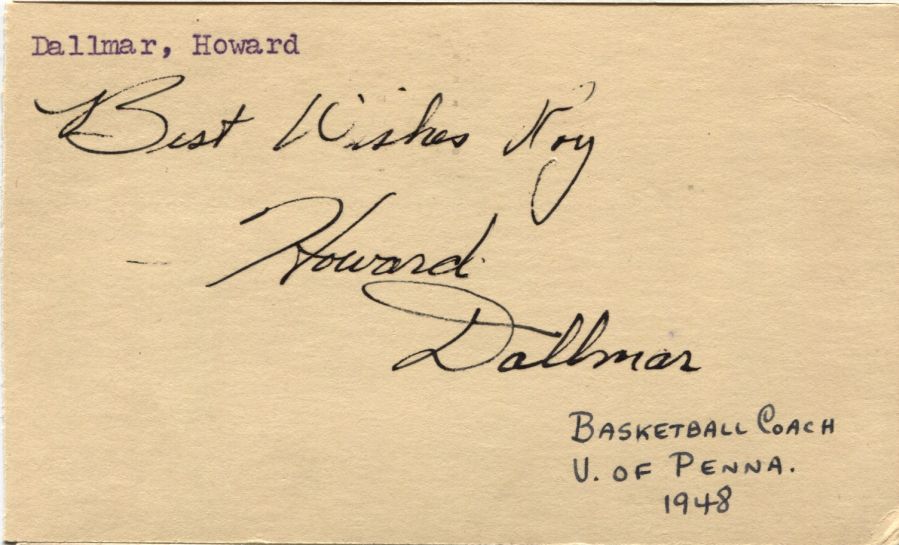 Dallmar, Howard
Best Wishes Roy
Howard
Dallmar
BASKETBALL COACH
U. OF PENNA.
1948